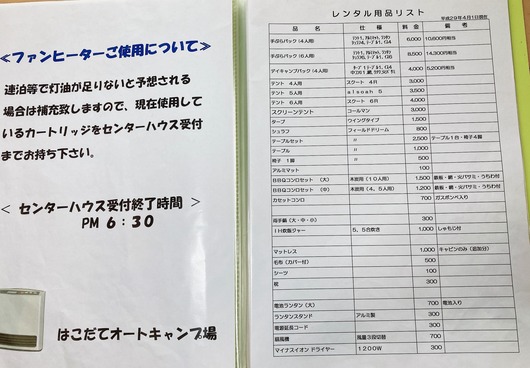 ≪ファンヒーターご使用について≫
連泊等で灯油が足りないと予想される
場合は補充致しますので、現在使用して
いるカートリッジをセンターハウス受付
までお持ち下さい。
＜ センターハウス受付終了時間 ＞
PM 6:30
はこだてオートキャンプ場
レンタル用品リスト
平成29年4月1日現在
品名 仕様 料金 備考
手ぶらパック (4人用) 6,000 10,600円相当
手ぶらパック (6人用) 8,500 14,300円相当
デイキャンプパック (4人用) 4,000 5,200円相当
テント 4人用 スクート 4R 3,000
テント 5人用 3,500
テント 6人用 スクート 6R 4,000
スクリーンテント コールマン 3,000
タープ ウイングタイプ 1,500
シュラフ フィールドドリーム 800
テーブルセット 〃 2,500 テーブル1台・椅子4脚
テーブル 〃 1,000
椅子 1脚 500
アルミマット 100
BBQコンロセット (大) 木炭用 (10人用) 1,500 鉄板・網・火バサミ・うちわ付
BBQコンロセット (中) 木炭用 (4、5人用) 1,200 鉄板・網・火バサミ・うちわ付
カセットコンロ 700 ガスボンベ入り
両手鍋 (大・中・小) 300
IH炊飯ジャー 5.5合炊き 1,000 しゃもじ付
マットレス 1,000 キャビンのみ (追加分)
毛布 (カバー付) 500
シーツ 100
枕 300
電池ランタン (大) 700 電池入り
ランタンスタンド アルミ製 300
電源延長コード 300
扇風機 風量3段切替 700
マイナスイオン ドライヤー 1200W 300